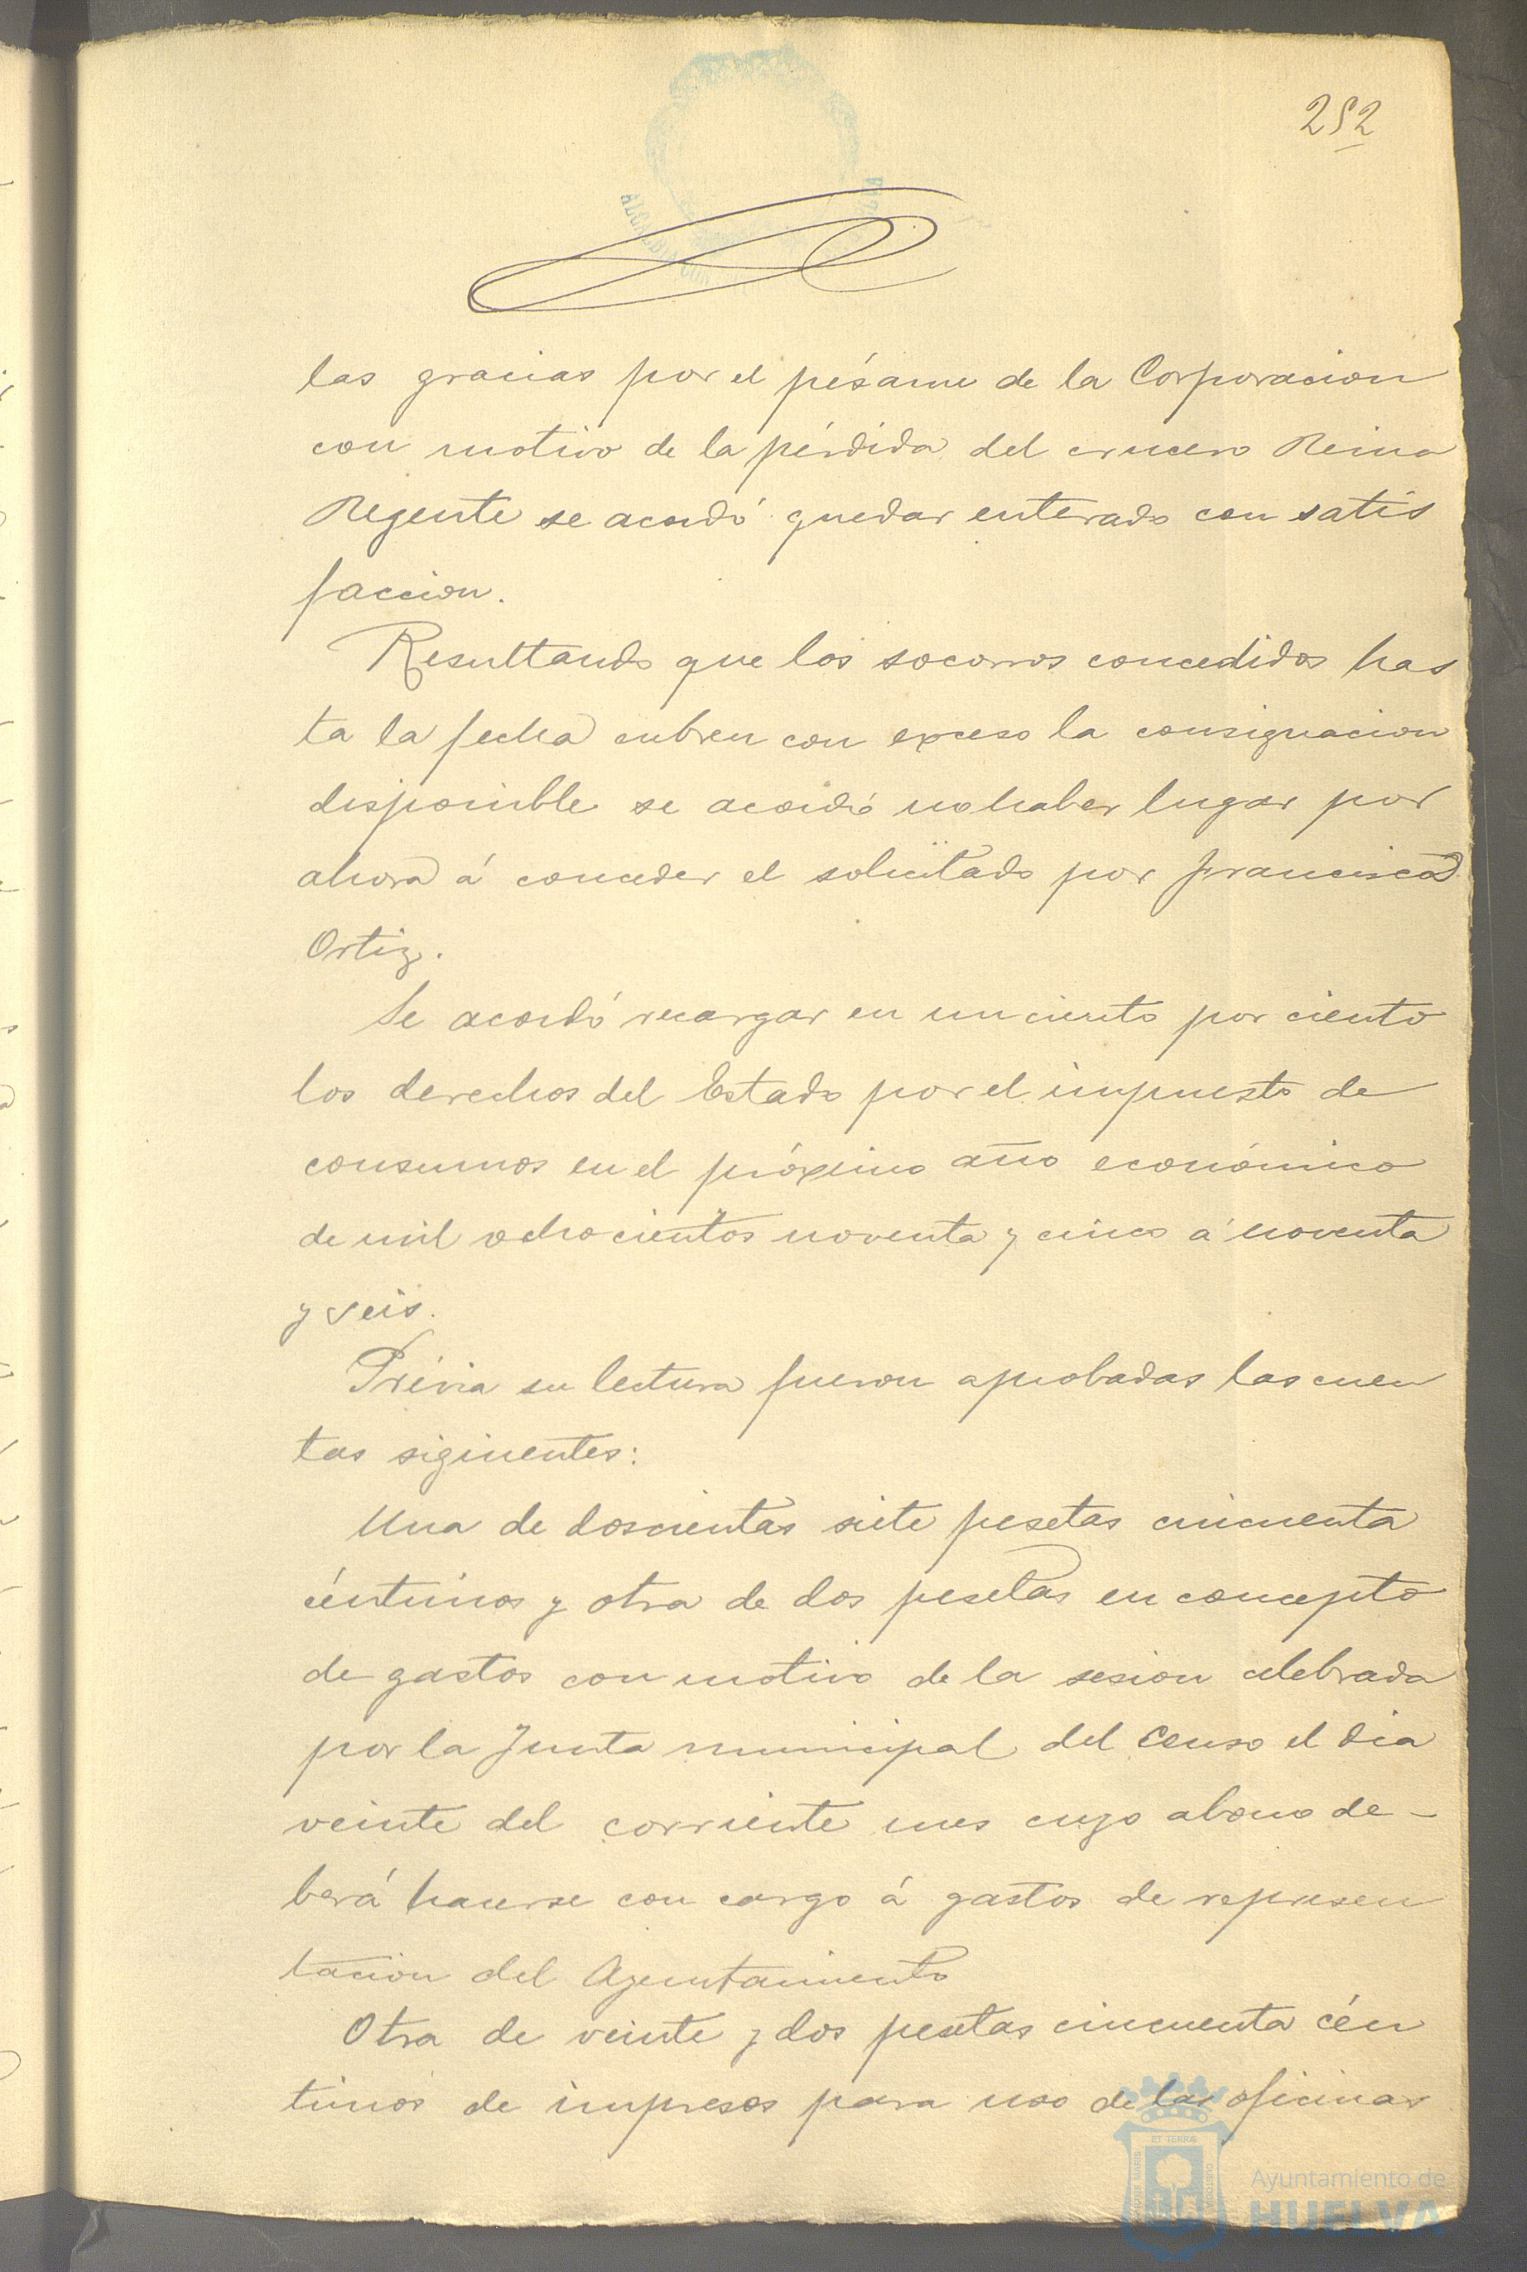 252
las gracias por el pésame de la Corporacion
con motivo de la pérdida del crucero Reina
Regente se acordó quedar enterado con satis
faccion.
Resultando que los socorros concedidos has
ta la fecha cubren con exceso la consignacion
disponible se acordó no haber lugar por
ahora á conceder el solicitado por Francisca
Ortiz.
Se acordó recargar en un ciento por ciento
los derechos del Estado por el impuesto de
consumos en el próximo año económico
de mil ochocientos noventa y cinco á noventa
y seis.
Prévia su lectura fueron aprobadas las cuen
tas siguientes:
Una de doscientas siete pesetas cincuenta
céntimos y otra de dos pesetas en concepto
de gastos con motivo de la sesion celebrada
por la Junta municipal del Censo el dia
veinte del corriente mes cuyo abono de-
berá hacerse con cargo á gastos de represen
tacion del Ayuntamiento
Otra de veinte y dos pesetas cincuenta cén
timos de impresos para uso de las oficinas
Ayuntamiento de
HUELVA